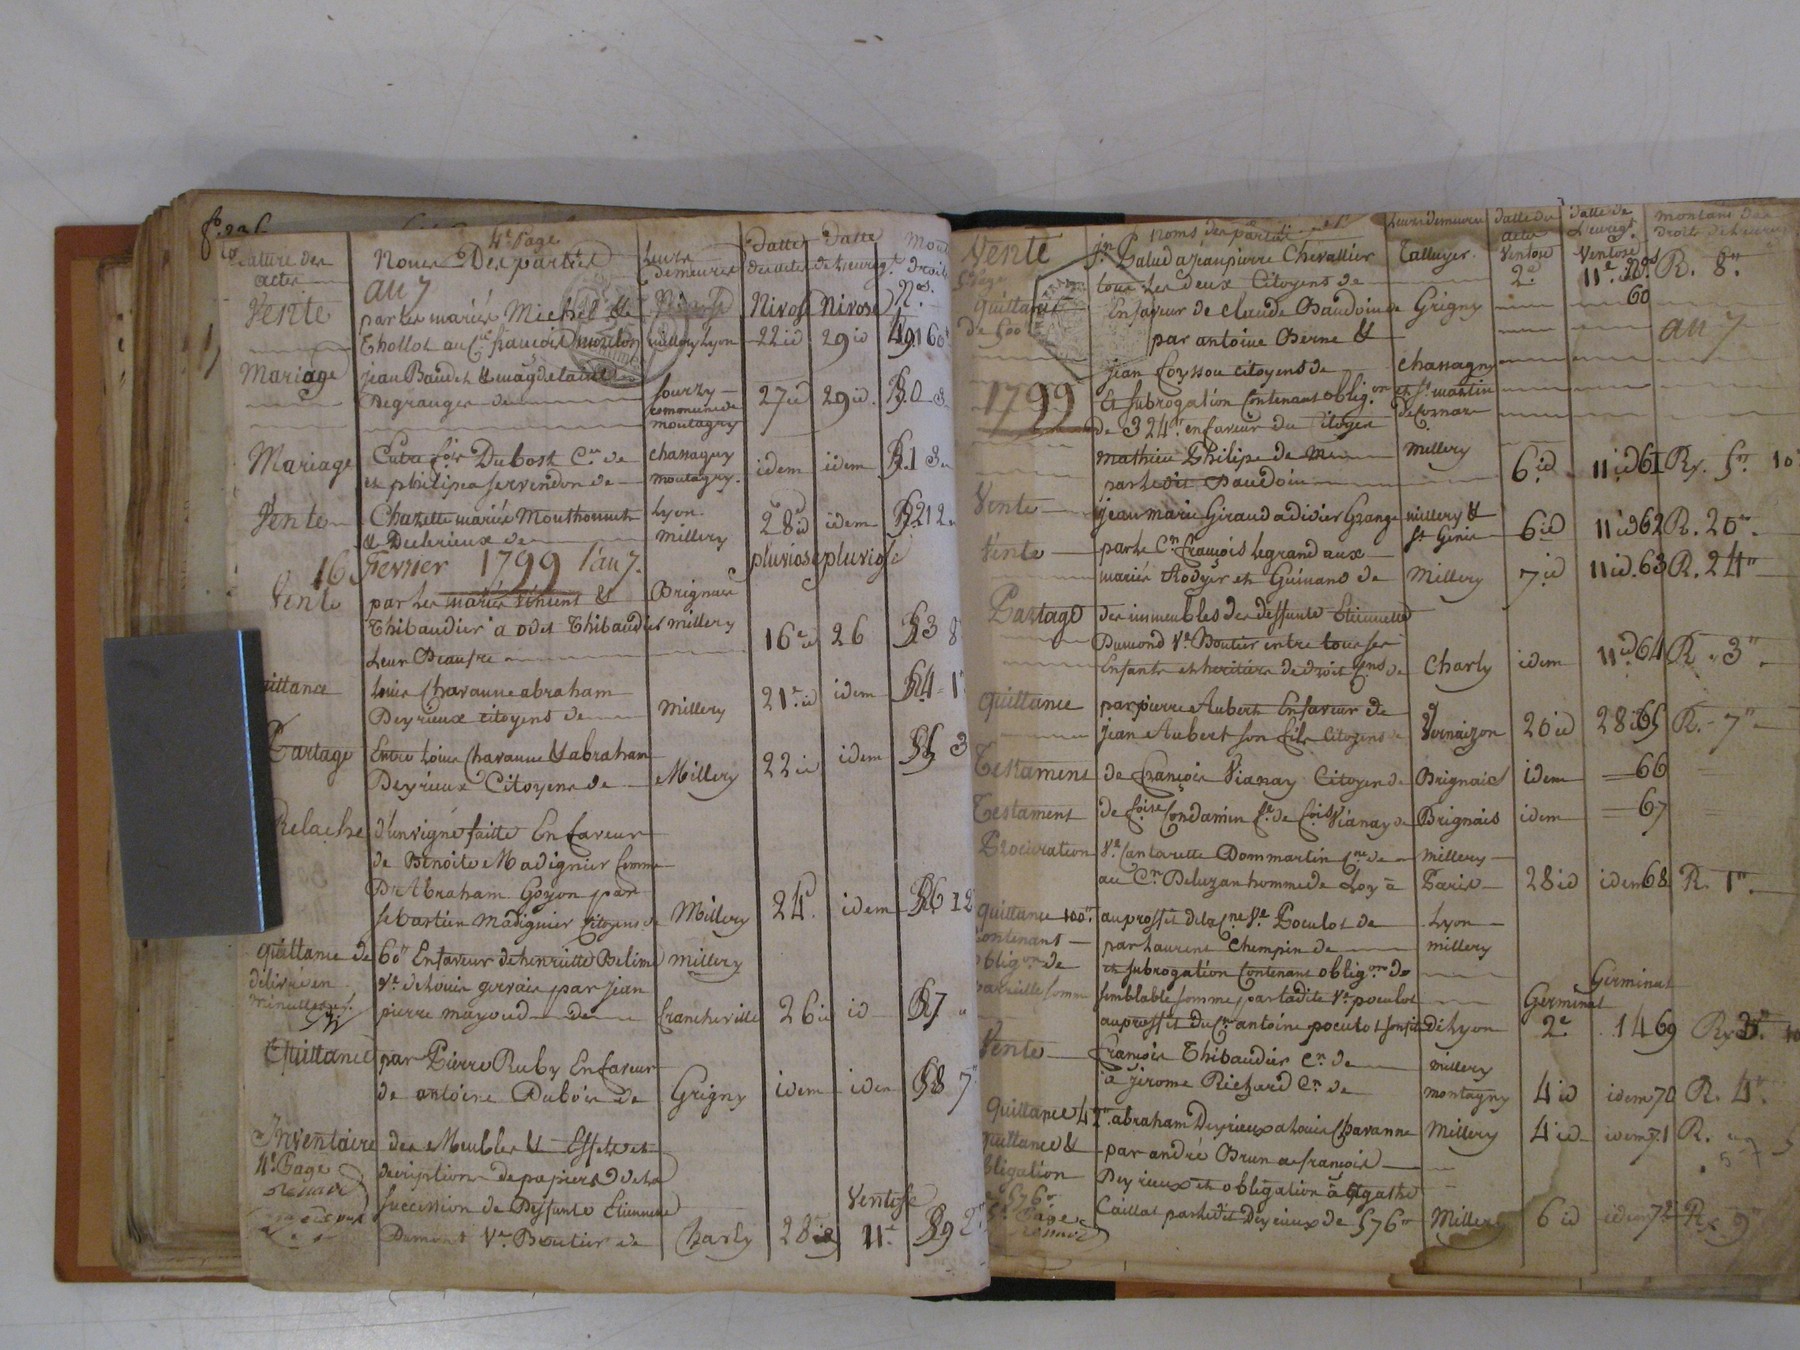 4e page
Nature des Noms Des parties Leurs datte datte
actes demeures des actes
an 7
Vente par les mariés Michel & Nivose Nivose Nos
Thollot au Cn françois mouton millery Lyon 22 id 29 id 49
Mariage jean Baudet & magdelaine Sourzy
Degranges de 27 id 29 id 50
commune de
montagny
Mariage Entre fois Dubost Cn de chassagny idem idem 51
et philipea servindon de montagny
Vente Chazelle mariés Mouthonnet Lyon 28 id idem 52
& Declerieux de millery
pluviose pluviose
16 Fevrier 1799 l'an 7.
Vente par les mariés &
Brignais
Thibaudier a odet Thibaudier millery 16e id 26 53
Leur Beaufre
uittance Louis Chavanne abraham
Deyrieux citoyens de millery 21e id idem 54
Partage Entre Louis Chavanne & abraham
Deyrieux Citoyens de Millery 22 id idem 55
Relache d'un vigne faitte En faveur
de Benoite Madignier femme
D'Abraham Goyon par
sebastien Madignier Citoyens de Millery 24 idem 56
quittance de 60tt En faveur de henriette Belime millery
délivré en Ve de Louis gervais par jean
pierre mayoud de francheville 26 id id 57
Quittance par Pierre Ruby En faveur
de antoine Dubois de Grigny idem idem 58
Inventaire des Meubles & Effets et
4e Page description de papiers de la
succession de Deffunte Etiennette Ventose
Dumond Ve Boutier de Charly 28 id 11e 59
Noms des parties Leurs demeures datte des datte de montant des
actes L'enregt. droits
Vente jn Palud a jean pierre Chevallier Talluyer Ventose Ventose
tous les deux Citoyens de 2e 11e Nos R. 8tt
quittance En faveur de claude Baudoin de Grigny 60
par antoine Berne & an 7
jean Coyssou citoyens de chassagny
1799 Et subrogation Contenant oblig.on et st martin
de 324tt en faveur du Citoyen de Cornas
mathieu Philipe de millery
par le dit Baudoin 6 id 11 id 61
Vente jean marie Giraud a didier Grange millery &
st Genis 6 id 11 id 62 R. 20tt
Vente par le Cn françois Legrand aux
mariés Rodger et Guinand de Millery 7 id 11 id 63 R. 24tt
Partage des immeubles de deffunte Etiennette
Dumond Ve Boutier entre tous ses
Enfants et heritiers de droit Cns de Charly idem 11 id 64 R 3tt
quittance par pierre Aubert En faveur de
jean Aubert son fils citoyens de Vernaizon 20 id 28 id 65 R. 7tt
Testament de françois Vianay Citoyen de Brignais idem 66
Testament de foise Condamin fe. de fois Vianay de Brignais idem 67
Procuration Ve Cantarelle Dommartin Cne de millery
au Cn Deluzan homme de Loy à Paris 28 id idem 68 R. 1tt
quittance 100tt au proffit de la Cne Ve Poculot de Lyon
contenant par Laurent Chempin de millery
oblig.on de et subrogation Contenant oblig.on de
pareille somme semblable somme par ladite Ve poculot Germinal Germinal
au proffit du Cn antoine poculot son fils de Lyon 2e 14 69
Vente françois Thibaudier Cn de millery
à jérome Richard Cn de montagny 4 id idem 70 R. 4tt
quittance abraham Deyrieux a Louis Chavanne Millery 4 id idem 71 R.
quittance & par andré Brun a françois
bligation Deyrieux et obligation à Agathe
Caillat par le dit Deyrieux de 576tt Millery 6 id idem 72 9tt